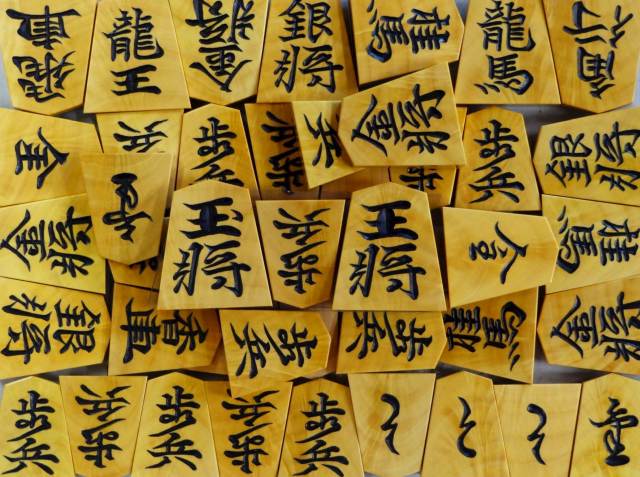 龍王
金将
銀将
桂馬
龍馬
歩兵
歩兵
兵
金将
歩兵
銀将
金将
玉将
歩兵
王将
桂馬
銀将
香車
歩兵
歩兵
金将
歩兵
歩兵
歩兵
歩兵
歩兵
と
と
と